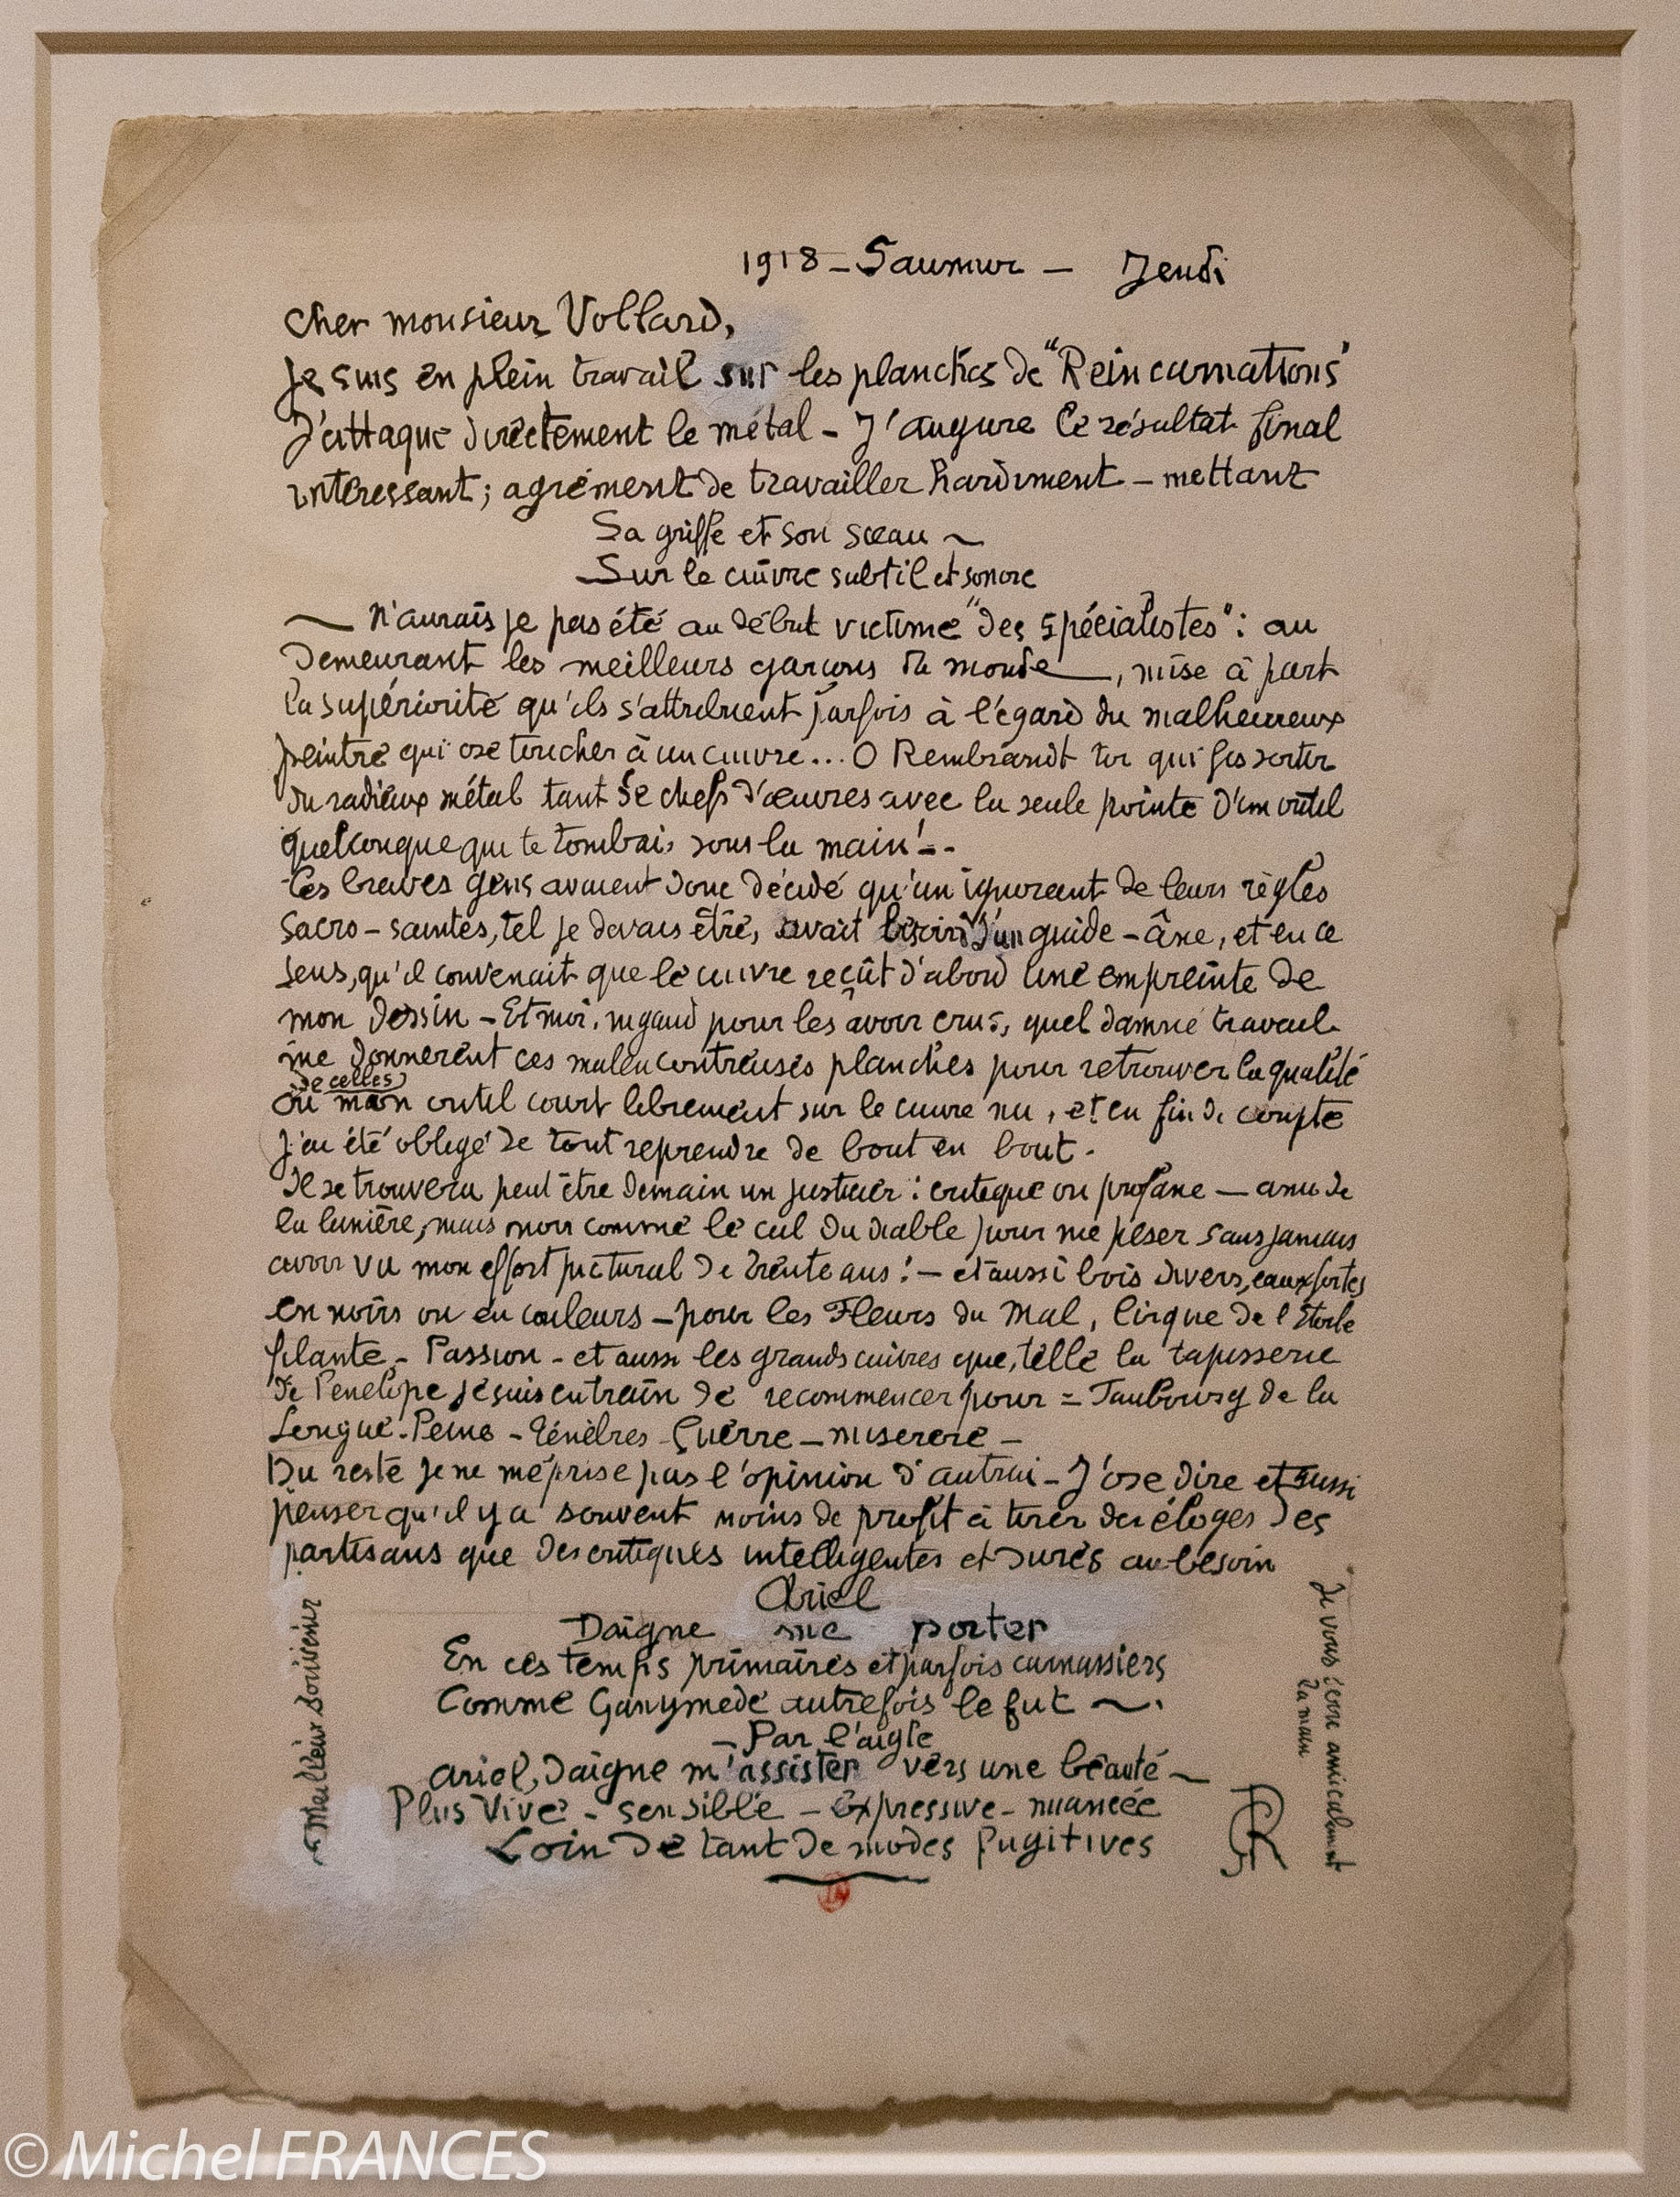 1918 – Saumur – Jeudi
Cher monsieur Vollard,
Je suis en plein travail sur les planches de "Réincarnations"
J'attaque directement le métal – J'augure le résultat final
intéressant; agrément de travailler hardiment – mettant
Sa griffe et son sceau ~
Sur le cuivre subtil et sonore
~ N'aurais je pas été au début victime "des spécialistes": au
demeurant les meilleurs garçons du monde —, mise à part
la supériorité qu'ils s'attribuent parfois à l'égard du malheureux
peintre qui ose toucher à un cuivre... O Rembrandt toi qui fis sortir
du radieux métal tant de chefs d'œuvres avec la seule pointe d'un outil
quelconque qui te tombais sous la main! – -
Ces braves gens avaient donc décidé qu'un ignorant de leurs règles
sacro-saintes, tel je devais être, avait besoin d'un guide-âne, et en ce
sens, qu'il convenait que le cuivre reçût d'abord une empreinte de
mon dessin – Et moi, nigaud pour les avoir crus, quel damné travail
me donnerent ces malencontreuses planches pour retrouver la qualité
de celles
où mon outil court librement sur le cuivre nu, et en fin de compte
j'ai été obligé de tout reprendre de bout en bout.
Il se trouvera peut être demain un justicier: critique ou profane — ami de
la lumière, mais noir comme le cul du diable pour me peser sans jamais
avoir vu mon effort pictural de trente ans! — et aussi bois divers, eaux fortes
en noirs ou en couleurs – pour les Fleurs du Mal, Cirque de l'Étoile
filante – Passion – et aussi les grands cuivres que, telle la tapisserie
de Penelope je suis en train de recommencer pour = Faubourg de la
Longue-Peine – Ténèbres – Guerre – miserere –
Du reste je ne méprise pas l'opinion d'autrui – J'ose dire et aussi
penser qu'il y a souvent moins de profit à tirer des éloges des
partisans que des critiques intelligentes et dures au besoin
Ariel
Daigne me porter
En ces temps primaires et parfois carnassiers
Comme Ganymede autrefois le fut ~.
– Par l'aigle
Ariel, daigne m'assister vers une beauté ~
Plus vive – sensible – Expressive – nuancée
Loin de tant de modes fugitives
~ Meilleur souvenir
Je vous serre amicalement
la main
GR
© Michel FRANCES